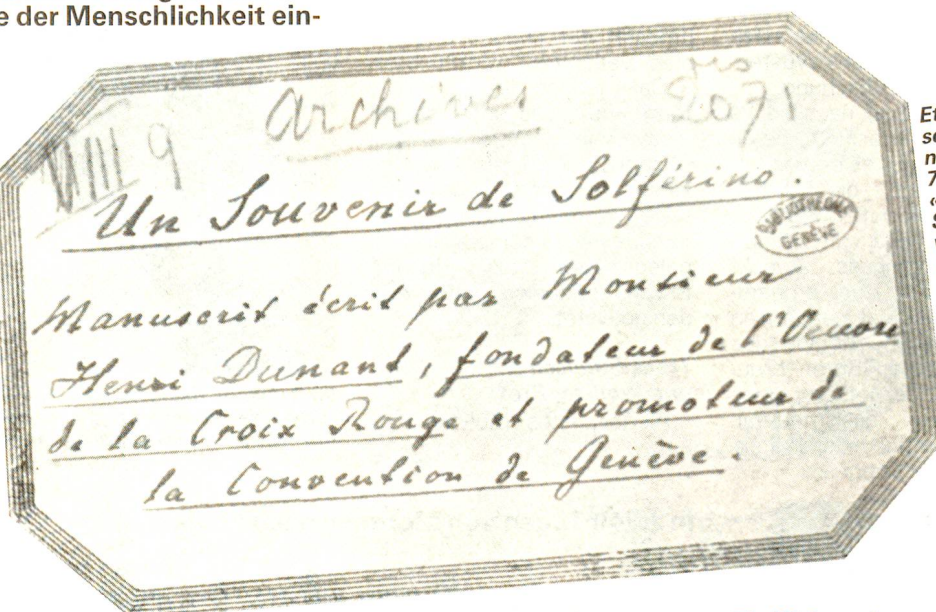 e der Menschlichkeit ein-
Archives
VIII 9
Ms
2071
Un Souvenir de Solférino.
BIBLIOTHEQUE
GENÈVE
Manuscrit écrit par Monsieur
Henri Dunant, fondateur de l'Oeuvre
de la Croix Rouge et promoteur de
la Convention de Genève.